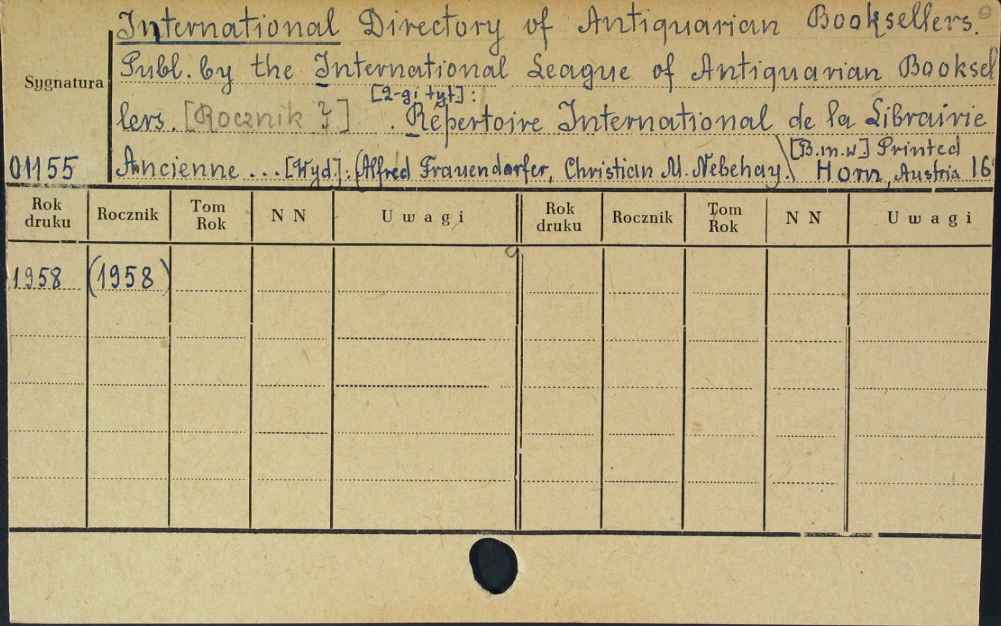 International Directory of Antiquarian Booksellers.
Sygnatura
Publ. by the International League of Antiquarian Booksel
[2-gi tyt]:
lers. [Rocznik ?] . Répertoire International de la Librairie
[B.m.w] Printed
01155 Ancienne ... [Wyd]: (Alfred Frauendorfer, Christian M. Nebehay.) Horn, Austria 16°
Rok druku Rocznik Tom Rok N N Uwagi Rok druku Rocznik Tom Rok N N Uwagi
1958 (1958)